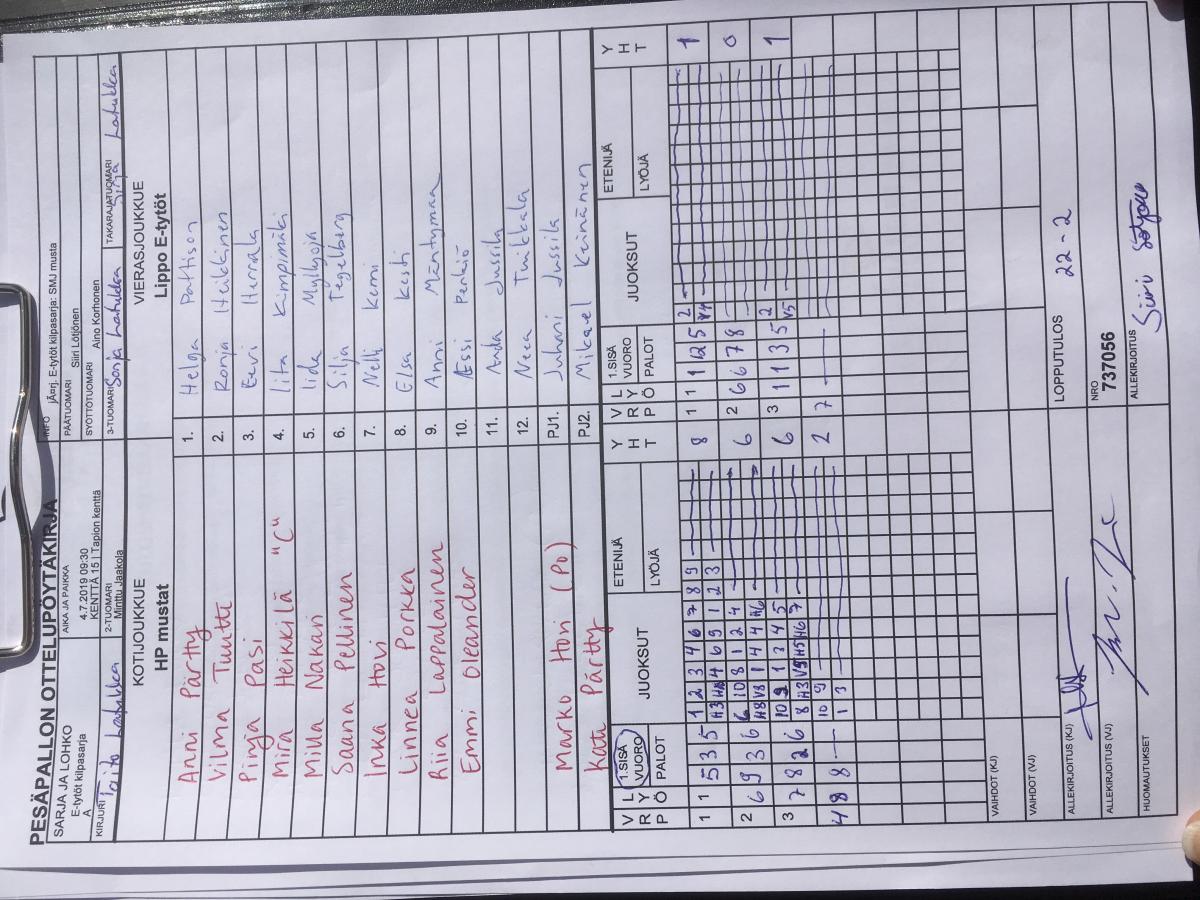 PESÄPALLON OTTELUPÖYTÄKIRJA
SARJA JA LOHKO
E-tytöt kilpasarja
A
AIKA JA PAIKKA
4.7.2019 09:30
KENTTÄ 15 | Tapion kenttä
INFO jÃ¤rj. E-tytöt kilpasarja: SMJ musta
PÄÄTUOMARI Siiri Lötjönen
SYÖTTÖTUOMARI Aino Korhonen
KIRJURI
2-TUOMARI
Minttu Jaakola
3-TUOMARI Sonja
TAKARAJATUOMARI
KOTIJOUKKUE VIERASJOUKKUE
HP mustat Lippo E-tytöt
Anni Pärtty 1. Helga Pattison
Vilma Tuutti 2. Ronja Heikkinen
Pinja Pasi 3. Eevi Herrala
Mira Heikkilä "C" 4. Iita Kimpimäki
Milla Nakari 5. Iida Myllyoja
Saana Pellinen 6. Silja Tegelberg
Inka Hovi 7. Nelli Kemi
Linnea Porkka 8. Elsa Kesti
Riia Lappalainen 9. Anni Mäntymaa
Emmi Oleander 10. Essi Penkiö
11. Jussila
12. Neea Tuikkala
Marko Hovi (PO) PJ1. Juhani Jussila
Kati Pärtty PJ2. Mikael Keinänen
VRP LYÖ 1.SISÄVUORO PALOT JUOKSUT ETENIJÄ LYÖJÄ YHT VRP LYÖ 1.SISÄVUORO PALOT JUOKSUT ETENIJÄ LYÖJÄ YHT
1 1 5 3 5 1 2 3 4 6 7 8 9 8 1 1 1 2 5 2 1
H3 4 6 9 1 2 3 V4
2 6 9 3 6 6 10 8 1 2 4 6 2 6 6 7 8 0
H8 V8 1 4 4 H6
3 7 8 2 6 10 9 1 3 4 5 6 3 1 1 3 5 2 1
8 H3 V5 H5 H6 7 V5
4 8 8 10 9 2 7
1 3
VAIHDOT (KJ)
VAIHDOT (VJ)
ALLEKIRJOITUS (KJ) LOPPUTULOS 22-2
ALLEKIRJOITUS (VJ) NRO
737056
HUOMAUTUKSET ALLEKIRJOITUS
Siiri